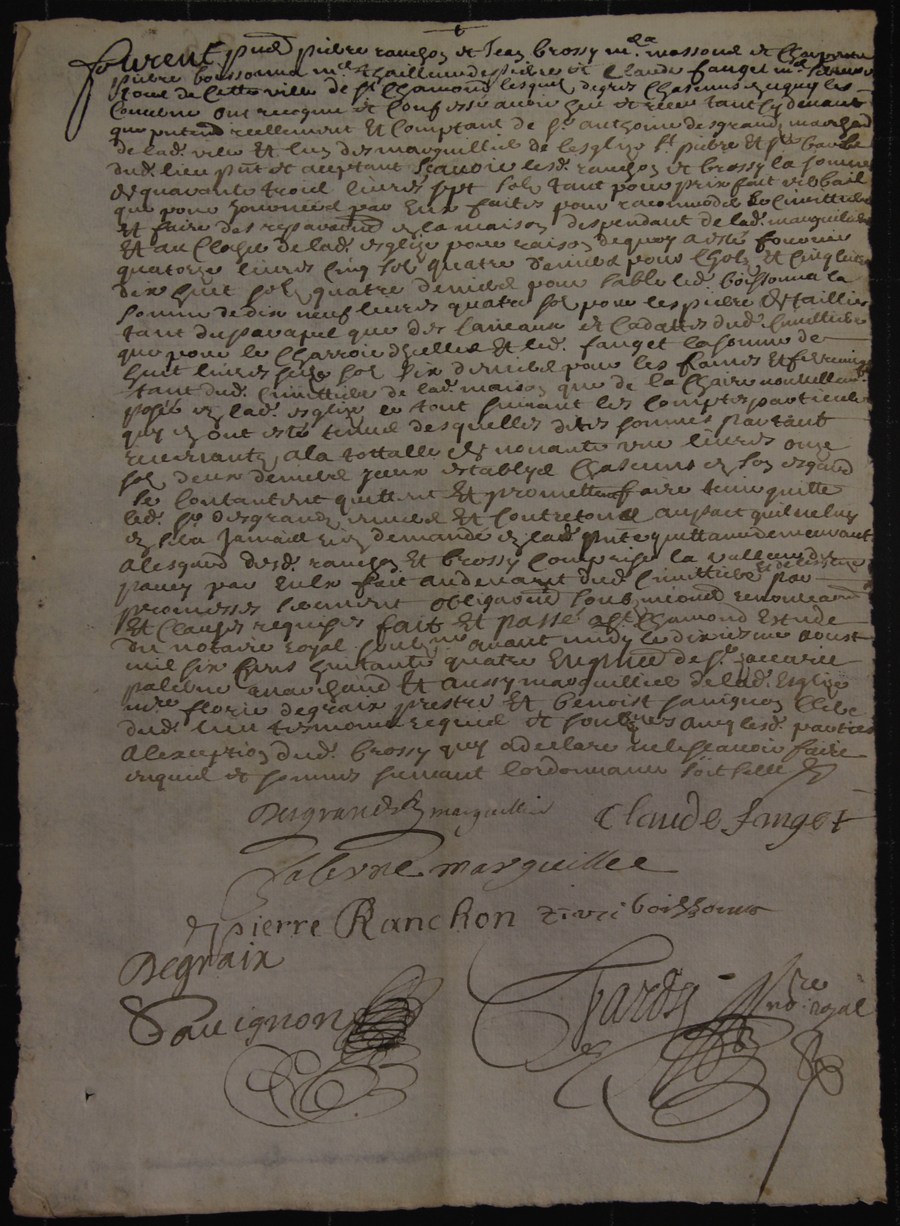 furent pnts pierre ranchon et Jean brossy mes massons et Charpentier
pierre boissonna me tailleur de pierre et Claude fauget me
tous de cette ville de st Chamond lesquels de gres Chascung en ce quy les
Concerne ont recogneu et Confessé avoir heu et receu tant cy devant
que pntement reellement et Comptant de sr anthoine desgrand marchand
de lad. ville et lun des marguilliers de lesglize st pierre et ste barbe
dud. lieu pnt et aceptant scavoir lesd. ranchon et brossy la somme
de quarante trois livres sept sols tant pour prix fait
que pour journees par eux faites pour racomoder le Cimettiere
et faire des reparations en la maison despendant de lad. marguillerie
Et au Clocher de lad. esglize pour raison de quoy a esté fourni
quatorze livres Cinq sols quatre deniers pour Chols et Cinq livres
dix huit sols quatre deniers pour sable led. boissonna la
somme de dix neuf livres quatre sols pour les pierre de taillie
tant du parapel que des Carreaux et Cadattes dud. Cimettiere
que pour le Charroir dicelles et led. fauget la somme de
huit livres seize sols six deniers pour les frames et ferrements
tant dud. Cimettiere de lad. maison que de la Chaire nouvellement
posée en lad. esglize le tout suivant les Comptes particuliers
quy en ont esté tenus desquelles dites sommes partant
revenants a la tottalle de nonante une livres onze
sols deux deniers yceux establys Chascung en son esgard
se Contantent quittent Et promettent faire tenir quitte
led. sr desgrand envers Et Contre tous au parti quil ne luy
en sera Jamais rien demandé en lad. pnte quittance demeurant
a lesgard desd. ranchon Et brossy Comprise la valleur des
pavez par eulx fait au devant dud. Cimettiere et de lesglize par
promesses serment obligations soubmissions renonciations
Et Clauses requises fait Et passé a st Chamond Estude
du notaire royal soubné avant midy le dixiesme aoust
mil six cens huitante quatre En pnce de sr zaccarie
palerne marchand Et aussy marguillier de lad. Esglize
mre floris degraix prestre Et benoist sauvignon Clerc
dud. lieu tesmoins requis et soubnés avec lesd. parties
a lexception dud. brossy quy a declaré ne le scavoir faire
enquis et sommés suivant lordonnance soit sellé
Desgrands marguillier
Claude fauget
Palerne marguillee
pierre Ranchon
boissona
Degraix
Sauvignon
Chardon nore royal